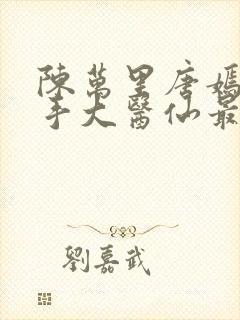 陳萬里唐嫣
手大醫仙最
劉嘉武